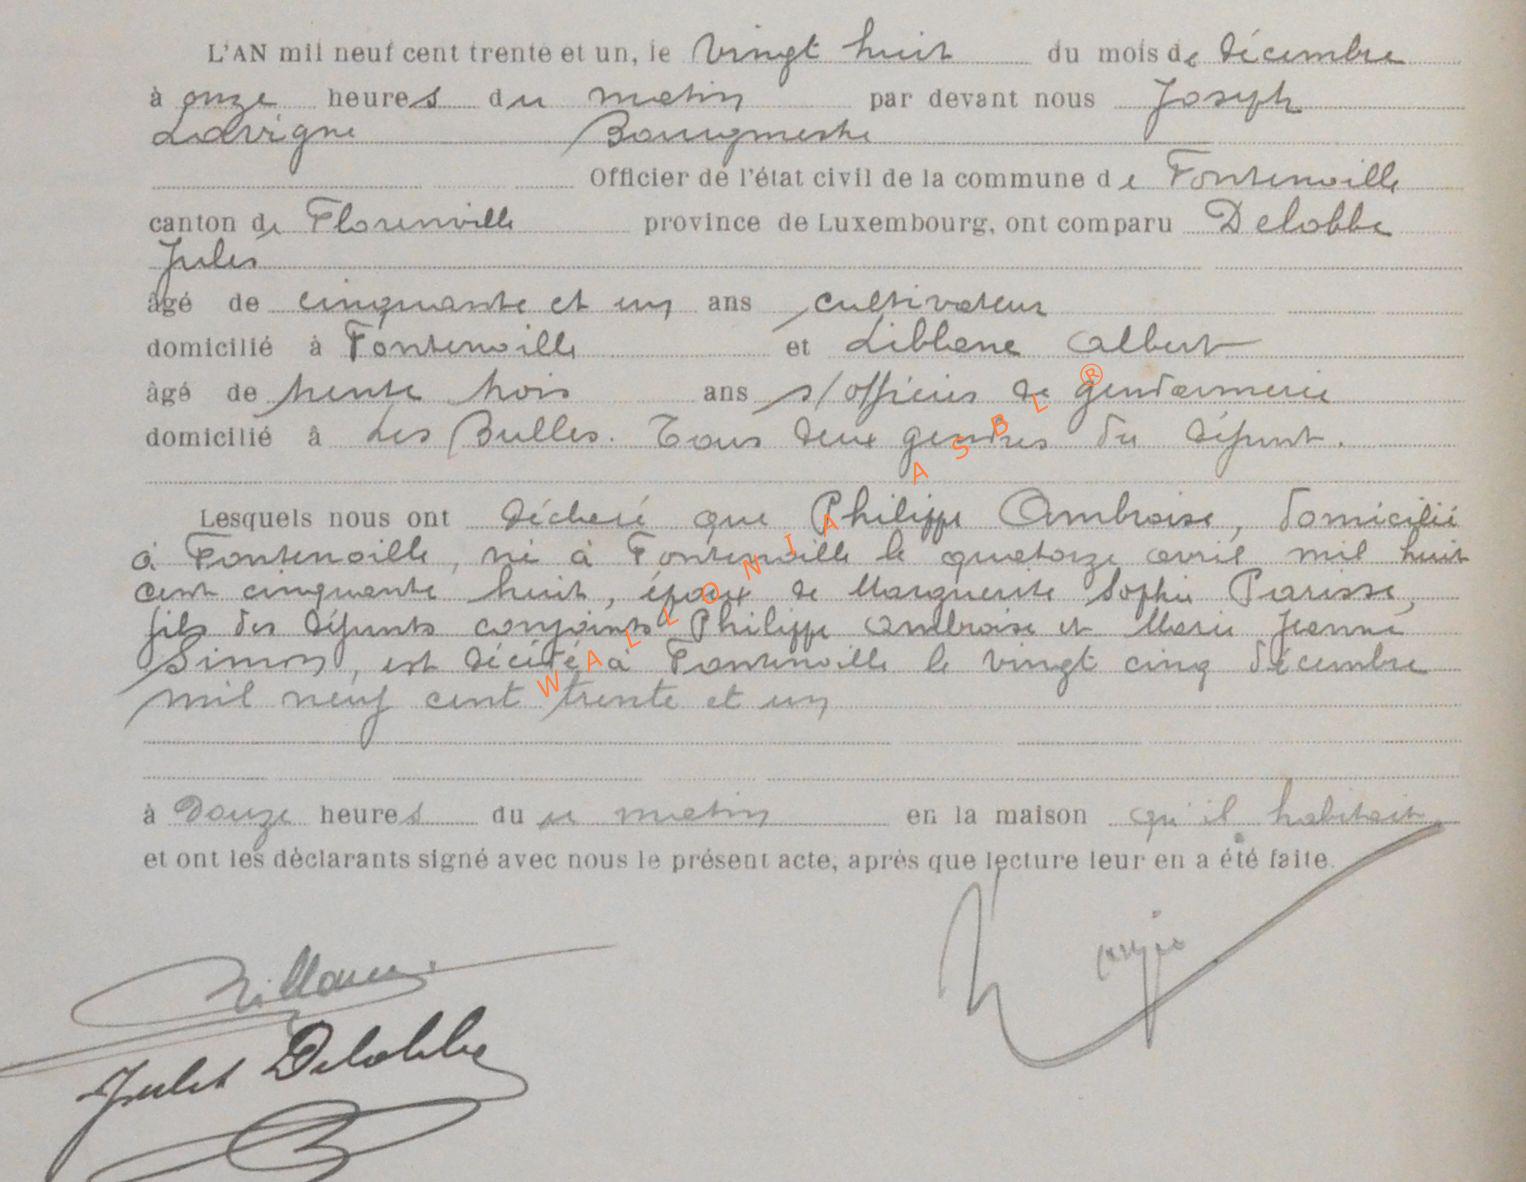 L'AN mil neuf cent trente et un, le vingt huit du mois de décembre
à onze heures du matin par devant nous Joseph
Lavigne Bourgmestre
Officier de l'état civil de la commune de Fontenoille
canton de Florenville province de Luxembourg, ont comparu Delobbe
Jules
âgé de cinquante et un ans cultivateur
domicilié à Fontenoille et Albert
âgé de trente trois ans s/officier de gendarmerie
domicilié à Les Bulles. Tous deux gendres du défunt.
Lesquels nous ont déclaré que Philippe Ambroise, domicilié
à Fontenoille, né à Fontenoille le quatorze avril mil huit
cent cinquante huit, époux de Marguerite Sophie Parisse,
fils des défunts conjoints Philippe Ambroise et Marie Jeanne
Simon, est décédé à Fontenoille le vingt cinq décembre
mil neuf cent trente et un
à douze heures du matin en la maison qu'il habitait.
et ont les déclarants signé avec nous le présent acte, après que lecture leur en a été faite.
Jules Delobbe
WALLONIA ASBL ®